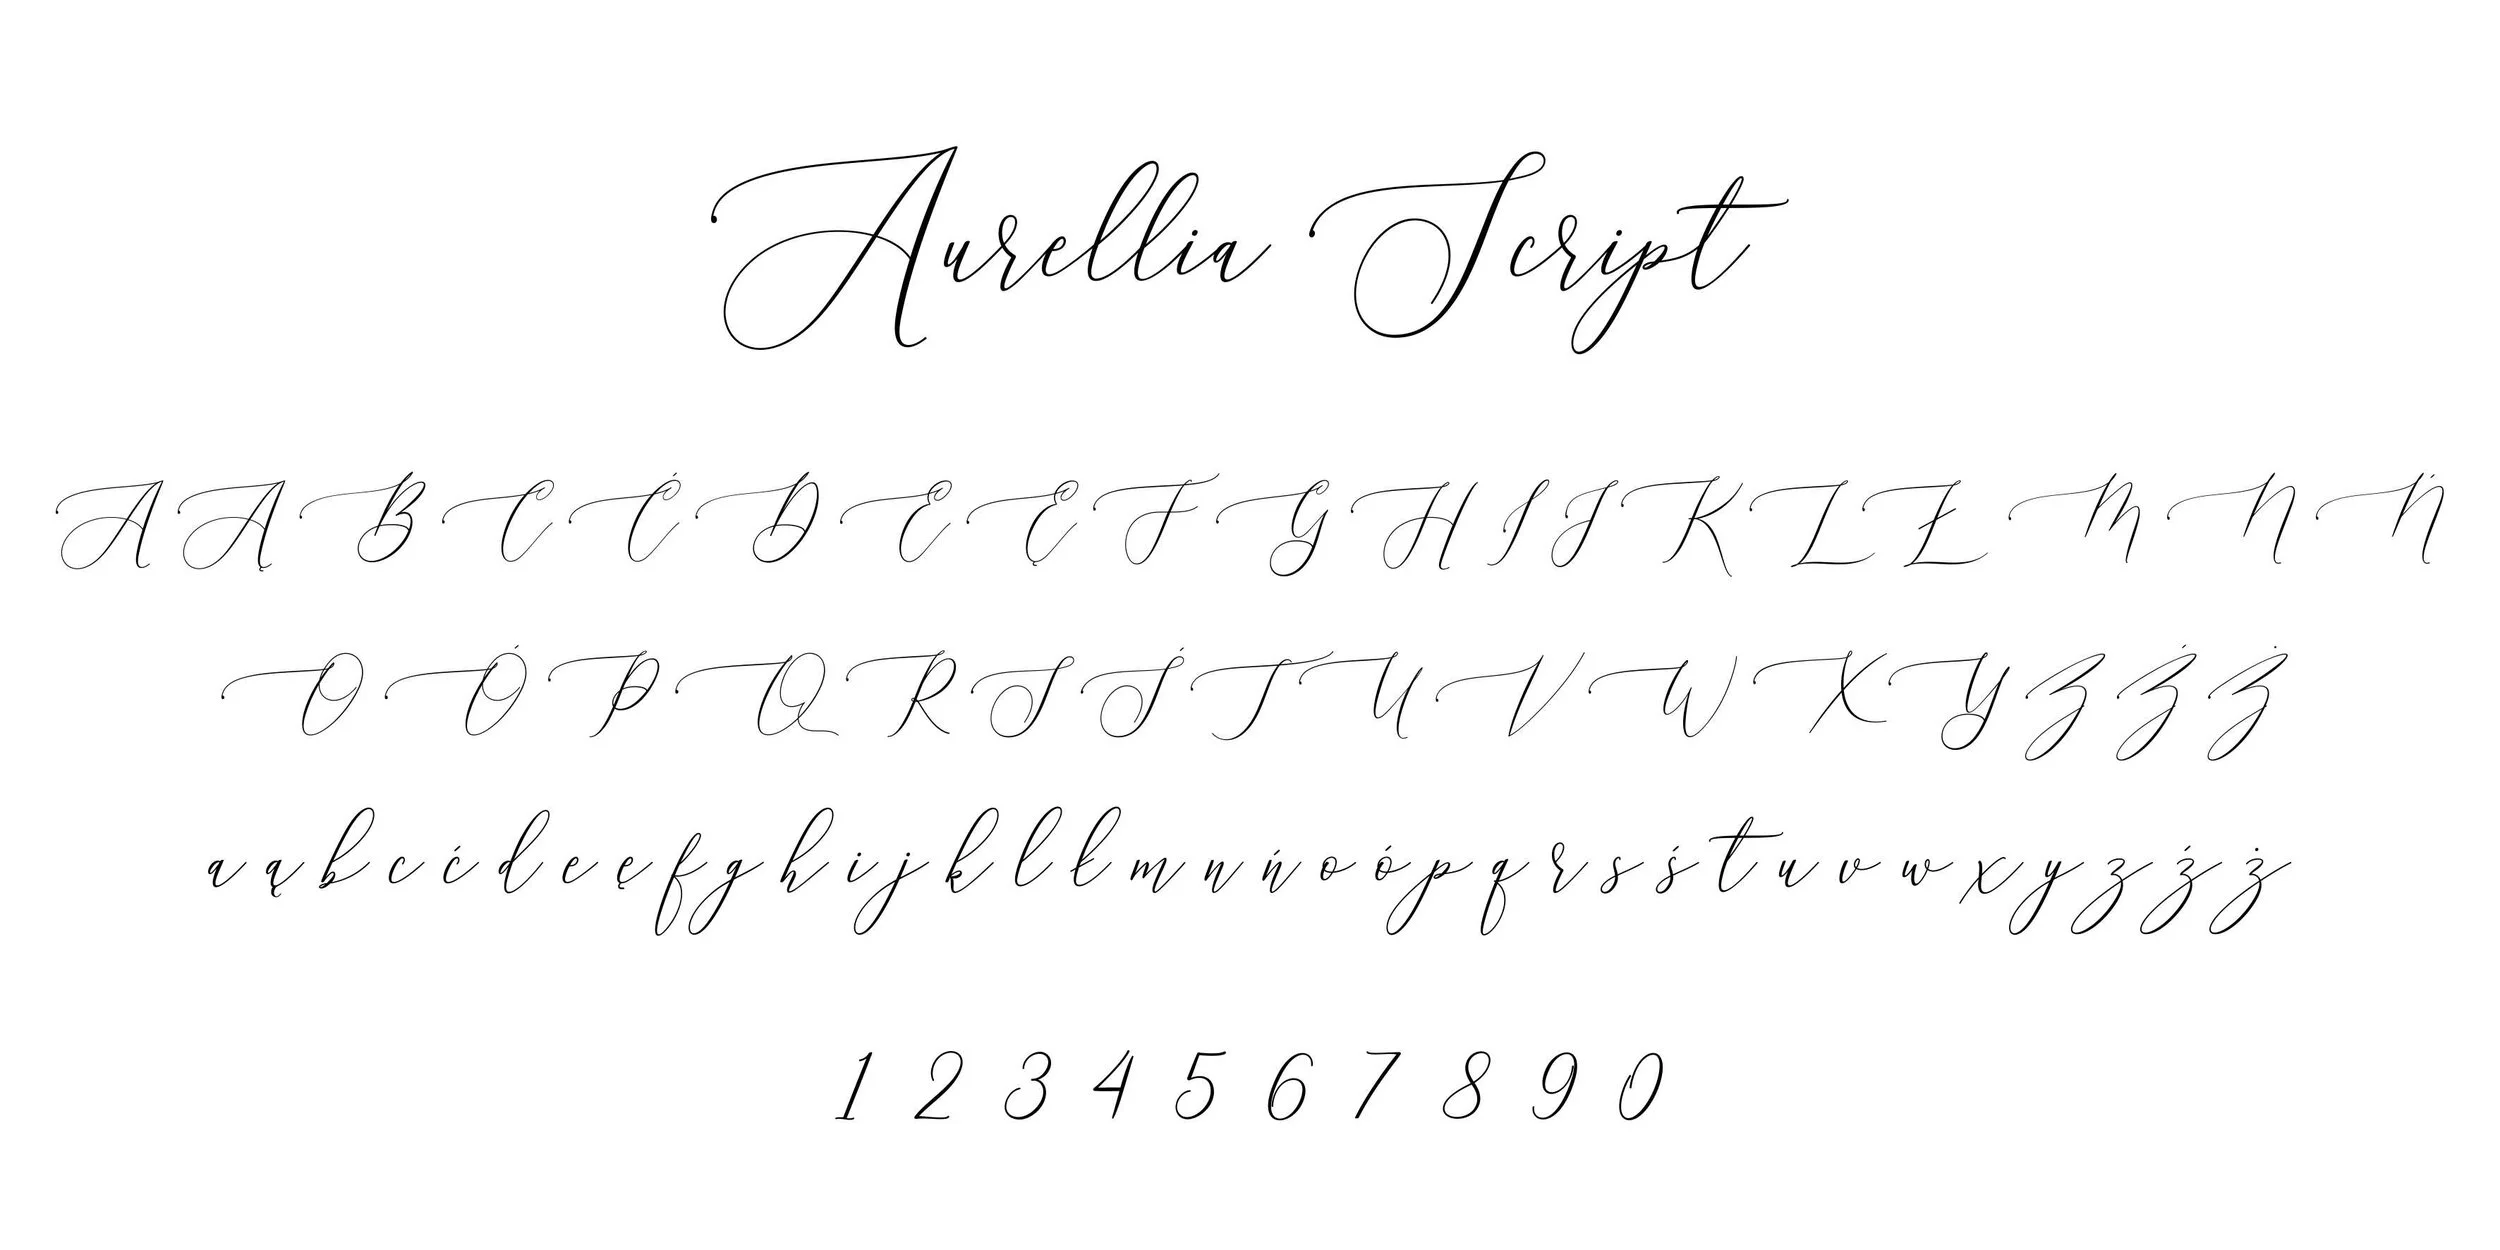 Aurellia Script
A Ą B C Ć D E Ę F G H I J K L Ł M N Ń
O Ó P Q R S Ś T U V W X Y Z Ź Ż
a ą b c ć d e ę f g h i j k l ł m n ń o ó p q r s ś t u v w x y z ź ż
1 2 3 4 5 6 7 8 9 0